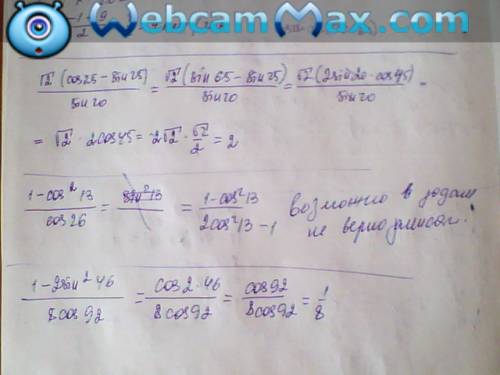 WebcamMax.com
√2 (cos25 - sin25)/sin20 = √2 (sin65 - sin25)/sin20 = √2 (2sin20·cos45)/sin20 =
= √2 · 2cos45 = 2√2 · √2/2 = 2
1-cos²13/cos26 = sin²13 = 1-cos²13/2cos²13-1 Возможно в задан
не верно записан.
1-2sin²46/8cos92 = cos2·46/8cos92 = cos92/8cos92 = 1/8